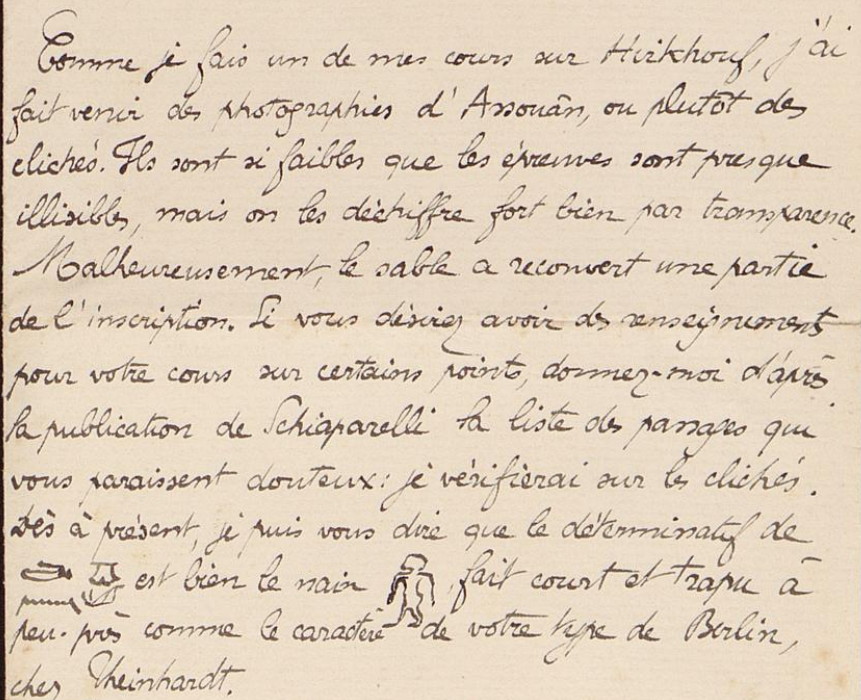 Comme je fais un de mes cours sur Hirkhouf, j'ai
fait venir des photographies d'Assouân, ou plutôt des
clichés. Ils sont si faibles que les épreuves sont presque
illisibles, mais on les déchiffre fort bien par transparence.
Malheureusement, le sable a recouvert une partie
de l'inscription. Si vous désirez avoir des renseignements
pour votre cours sur certains points, donnez-moi d'après
la publication de Schiaparelli la liste des passages qui
vous paraissent douteux: je vérifierai sur les clichés.
Dès à présent, je puis vous dire que le déterminatif de
est bien le nain, fait court et trapu à
peu-près comme le caractère de votre type de Berlin,
chez Theinhardt.